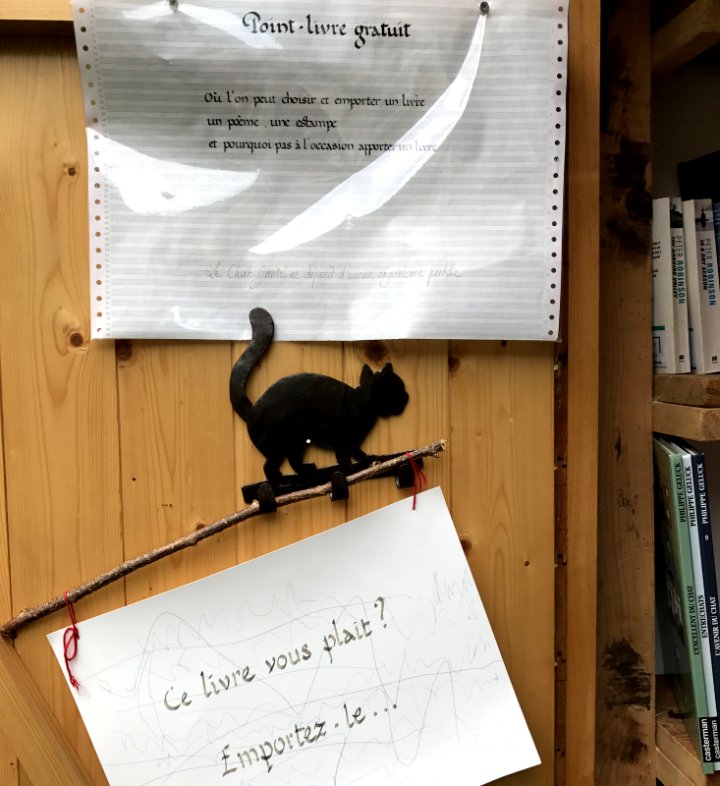 Point-livre gratuit
Où l'on peut choisir et emporter un livre
un poême, une estampe
et pourquoi pas à l'occasion apporter un livre
Le Chat ne dépend d'aucun organisme public
Ce livre vous plait ?
Emportez-le...
PETER ROBINSON
PETER ROBINSON
IN A DRY SEASON
PHILIPPE GELUCK
L'EXCELLENT DU CHAT
PHILIPPE GELUCK
ENTRECHATS
PHILIPPE GELUCK
9
L'AVENIR DU CHAT
casterman
casterman